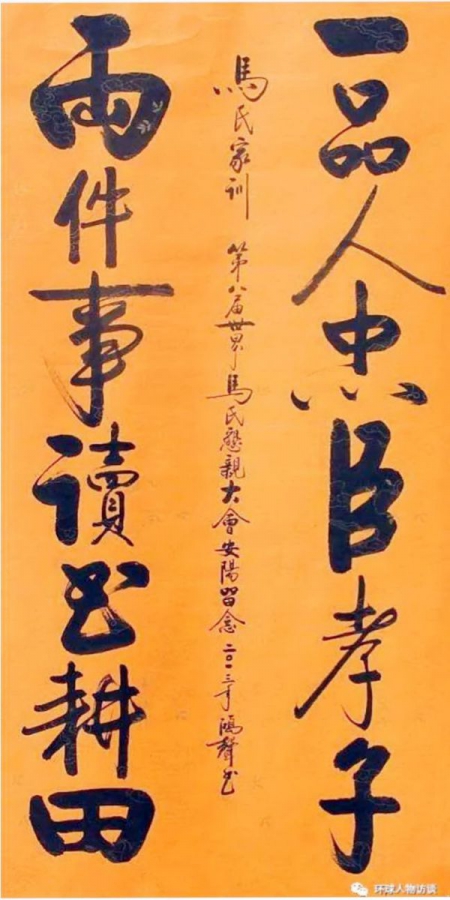 一品人忠臣孝子
馬氏家训 第八届世界馬氏懇親大會安陽留念 二〇一三年 鴻聲书
兩件事讀书耕田
环球人物访谈